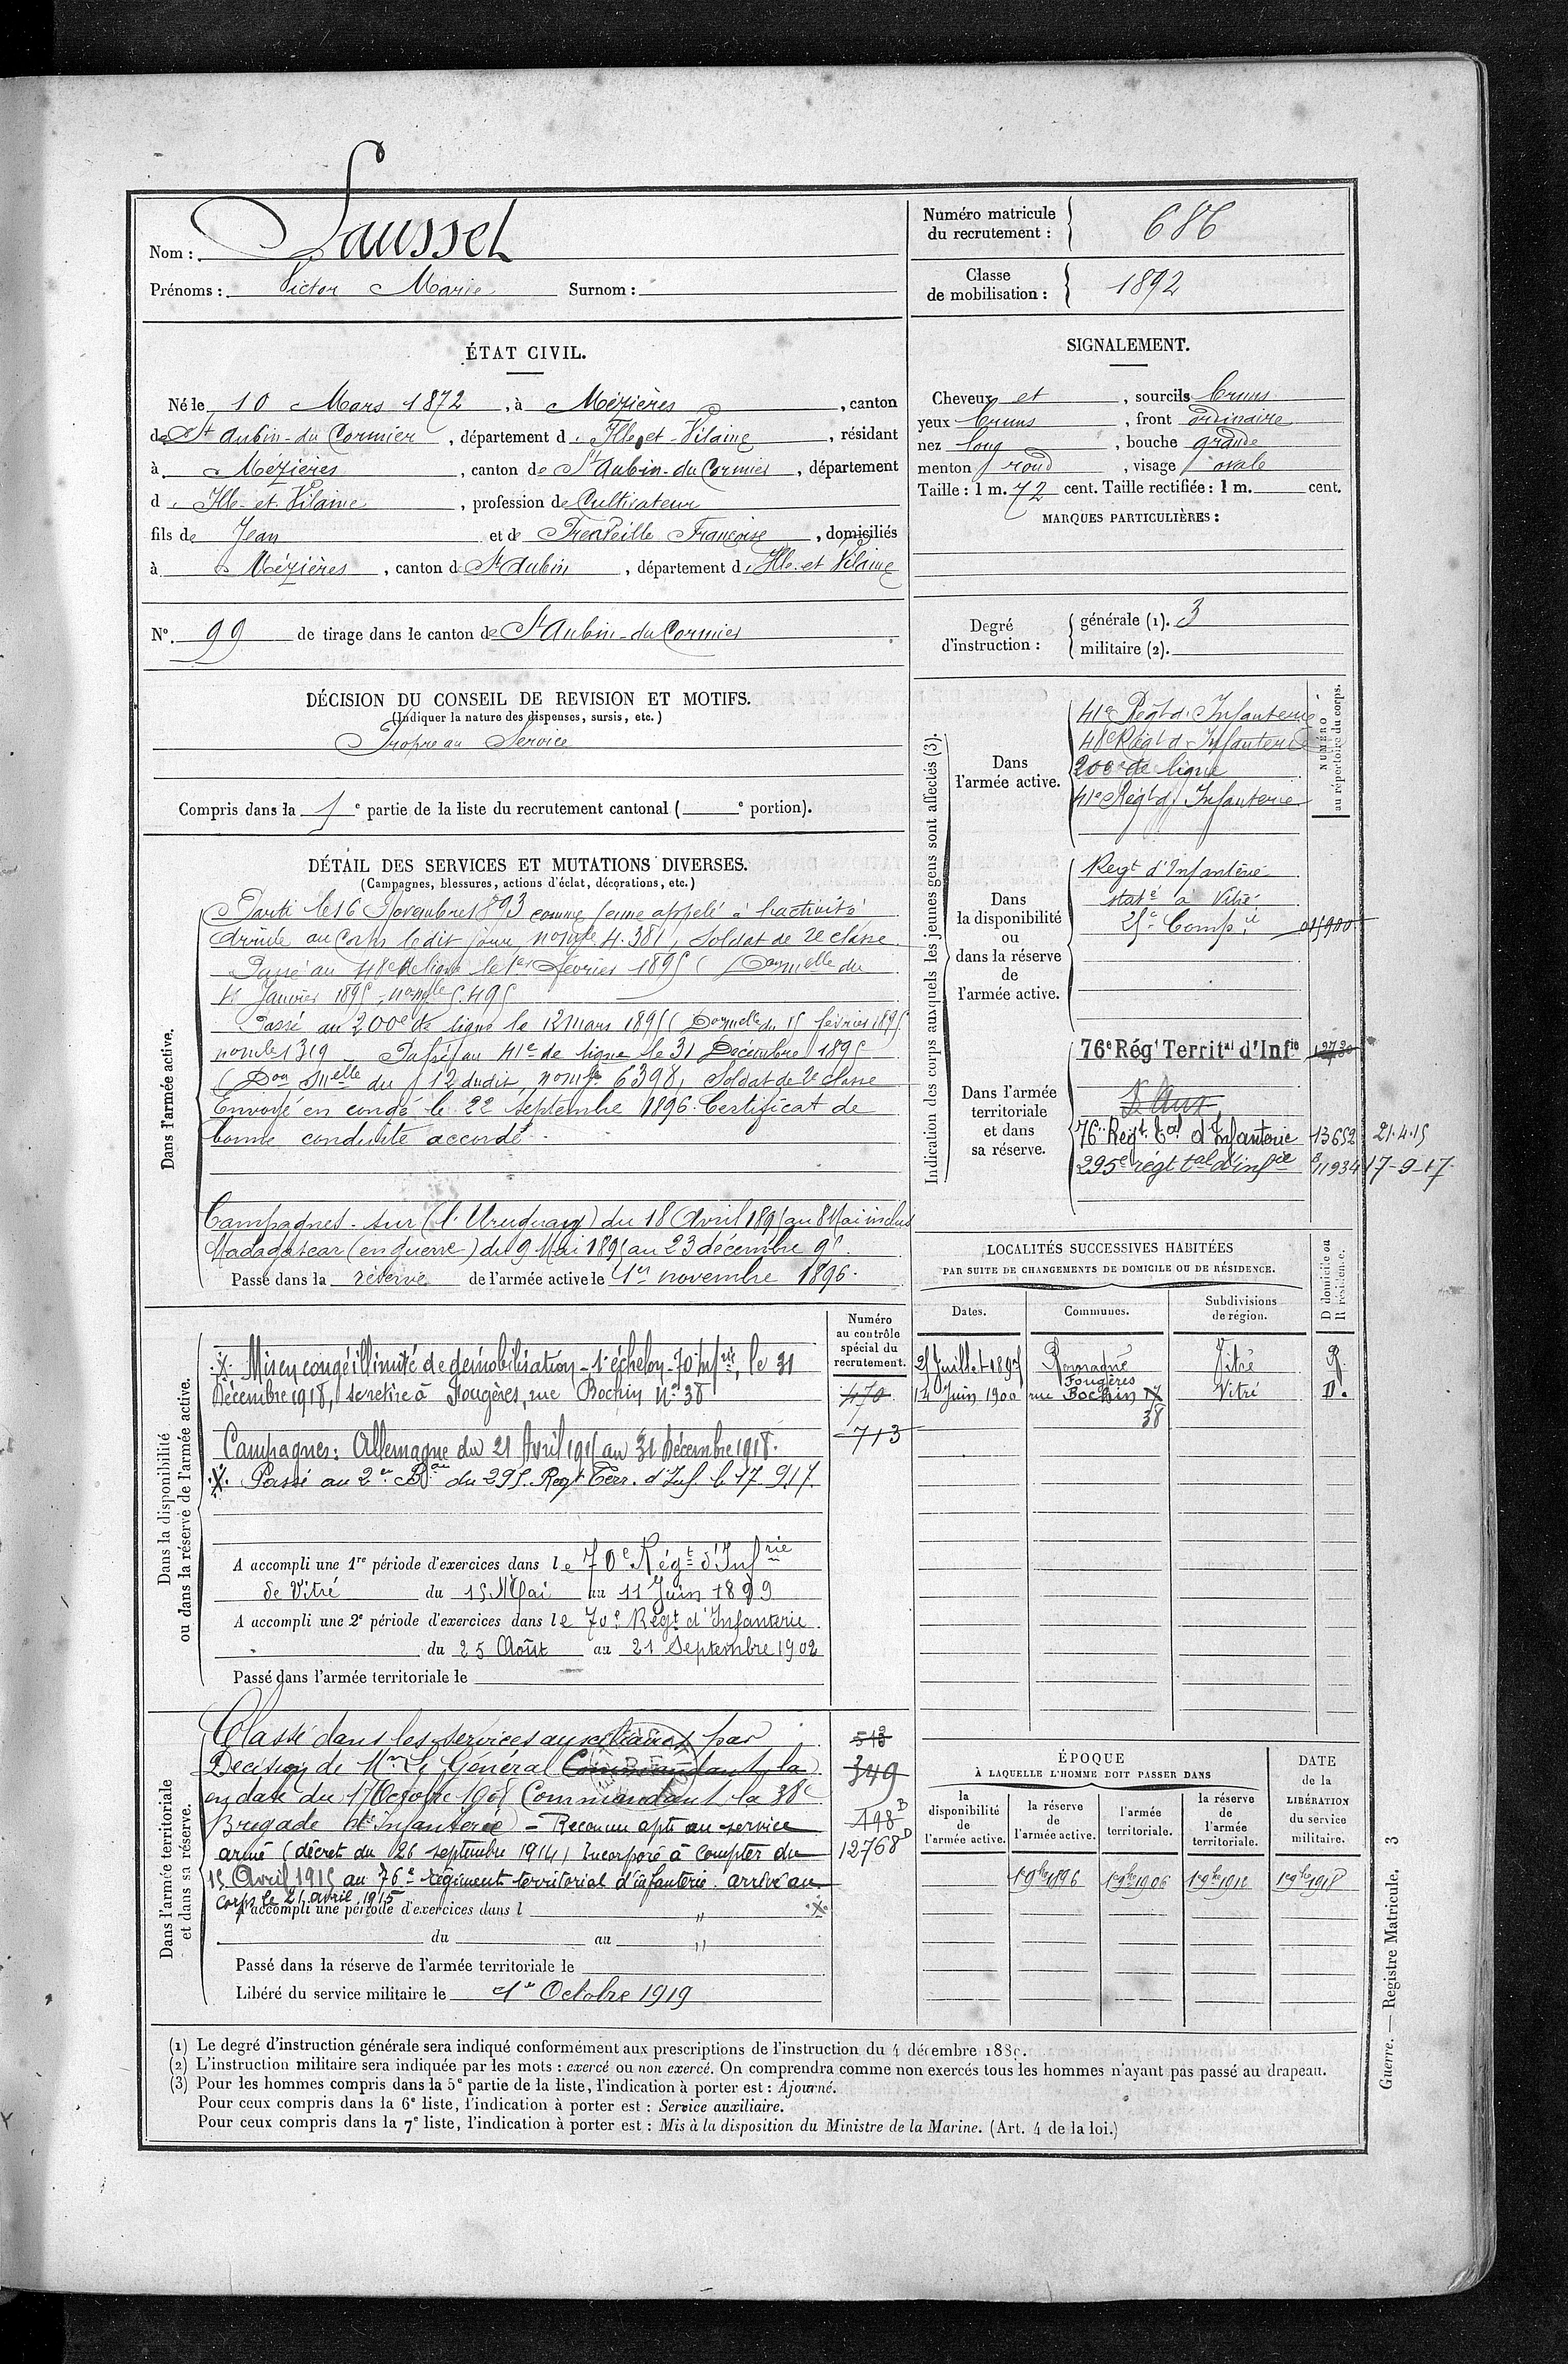 Nom : Saussel
Prénoms : Victor Marie Surnom :
Numéro matricule du recrutement : 686
Classe de mobilisation : 1892
ÉTAT CIVIL.
Né le 10 Mars 1872, à Mézières, canton
de St Aubin-du Cormier, département d Ille et-Vilaine, résidant
à Mézières, canton de St Aubin-du Cormier, département
d Ille-et-Vilaine, profession de Cultivateur
fils de Jean et de Françoise, domiciliés
à Mézières, canton d St Aubin, département d Ille-et Vilaine
No. 99 de tirage dans le canton de St Aubin-du Cormier
SIGNALEMENT.
Cheveux et, sourcils bruns
yeux bruns, front ordinaire
nez long, bouche grande
menton rond, visage ovale
Taille : 1 m. 72 cent. Taille rectifiée : 1 m. cent.
MARQUES PARTICULIÈRES :
Degré d'instruction : générale (1). 3
militaire (2).
DÉCISION DU CONSEIL DE REVISION ET MOTIFS.
(Indiquer la nature des dispenses, sursis, etc.)
Propre au Service
Compris dans la 1e partie de la liste du recrutement cantonal ( e portion).
DÉTAIL DES SERVICES ET MUTATIONS DIVERSES.
(Campagnes, blessures, actions d'éclat, décorations, etc.)
Dans l'armée active.
Parti le 16 Novembre 1893 comme jeune appelé à l'activité
Arrivé au Corps le dit jour, no mle 4.381, Soldat de 2e classe.
Passé au 48e de ligne le 1er Février 1895 (Don mlle du
Janvier 1895, no mle 5.495
Passé au 200e de ligne le 12 mars 1895 (Don melle du 15 février 1895
no mle 1319 – Passé au 41e de ligne le 31 Décembre 1895
(Don Melle du 12 dudit, no mle 6398, Soldat de 2e classe
Envoyé en congé le 22 septembre 1896. Certificat de
bonne conduite accordé.
Campagnes - sur (l'Uruguay) du 18 Avril 1895 au 8 Mai inclus
Madagascar (en guerre) du 9 Mai 1895 au 23 décembre 95.
Passé dans la réserve de l'armée active le 1er novembre 1896.
Indication des corps auxquels les jeunes gens sont affectés (3).
NUMÉRO au répertoire du corps.
Dans l'armée active.
41e Régt d'Infanterie
48e Régt d'Infanterie
200e de ligne
41e Régt d'Infanterie
Dans la disponibilité ou dans la réserve de l'armée active.
Regt d'Infanterie
staté à Vitré
25e Compie
Dans l'armée territoriale et dans sa réserve.
76e Régt Territal d'Infie 12730
S. Aux
76e Regt tal d'Infanterie 13652 21.4.15
295e régt tal d'infie 11934 17-9-17.
LOCALITÉS SUCCESSIVES HABITÉES
PAR SUITE DE CHANGEMENTS DE DOMICILE OU DE RÉSIDENCE.
D domicile ou R résidence.
Dates. Communes. Subdivisions de région.
25 Juillet 1897 Romagné Vitré R.
14 Juin 1900 Fougères rue Bochin 38 Vitré D.
Dans la disponibilité ou dans la réserve de l'armée active.
Numéro au contrôle spécial du recrutement.
470
713
Mis en congé illimité de démobilisation - 1er échelon - 70e Infrie, le 31
Décembre 1918, se retire à Fougères, rue Bochin No 38
Campagnes : Allemagne du 21 Avril 1915 au 31 Décembre 1918.
Passé au 2e Bon du 295 Regt Terr. d'Inf. le 17.9.17.
A accompli une 1re période d'exercices dans le 70e Régt d'Infrie
de Vitré du 15 Mai au 11 Juin 1899
A accompli une 2e période d'exercices dans le 70e Régt d'Infanterie
du 25 Août au 21 Septembre 1902
Passé dans l'armée territoriale le
Dans l'armée territoriale et dans sa réserve.
Classé dans les services auxiliaires par
Décision de Mr Le Général Commandant la
en date du 17 Octobre 1908 Commandant la 38e
Brigade d'Infanterie – Reconnu apte au service
armé (décret du 26 septembre 1914) Incorporé à compter du
15 Avril 1915 au 76e régiment territorial d'infanterie. arrivé au
corps le 21 avril 1915
349
198 D
12768 D
A accompli une période d'exercices dans l "
du au "
Passé dans la réserve de l'armée territoriale le
Libéré du service militaire le 1er Octobre 1919
ÉPOQUE
À LAQUELLE L'HOMME DOIT PASSER DANS
la disponibilité de l'armée active.
la réserve de l'armée active.
l'armée territoriale.
la réserve de l'armée territoriale.
DATE de la LIBÉRATION du service militaire.
1er 9bre 1896 1er 9bre 1906 1er 9bre 1912 1er 9bre 1918
(1) Le degré d'instruction générale sera indiqué conformément aux prescriptions de l'instruction du 4 décembre 1889.
(2) L'instruction militaire sera indiquée par les mots : exercé ou non exercé. On comprendra comme non exercés tous les hommes n'ayant pas passé au drapeau.
(3) Pour les hommes compris dans la 5e partie de la liste, l'indication à porter est : Ajourné.
Pour ceux compris dans la 6e liste, l'indication à porter est : Service auxiliaire.
Pour ceux compris dans la 7e liste, l'indication à porter est : Mis à la disposition du Ministre de la Marine. (Art. 4 de la loi.)
Guerre. — Registre Matricule. 3